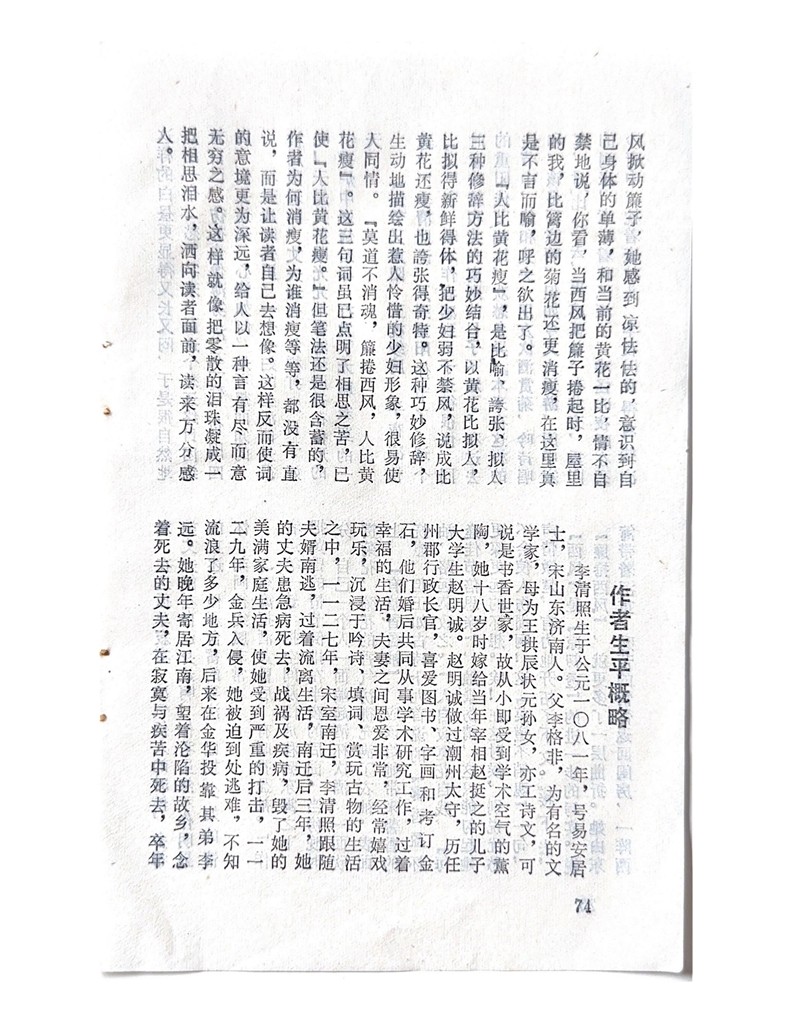 风掀动簾子，她感到凉怯怯的，意识到自
己身体的单薄，和当前的黄花一比，情不自
禁地说：你看，当西风把簾子捲起时，屋里
的我，比篱边的菊花还更消瘦，在这里真
是不言而喻，呼之欲出了。
『人比黄花瘦』，是比喻、誇张、拟人
三种修辞方法的巧妙结合，以黄花比拟人，
比拟得新鲜得体，把少妇弱不禁风，说成比
黄花还瘦，也誇张得奇特。这种巧妙修辞，
生动地描绘出惹人怜惜的少妇形象，很易使
人同情。『莫道不消魂，簾捲西风，人比黄
花瘦』。这三句词虽已点明了相思之苦，已
使『人比黄花瘦。』但笔法还是很含蓄的，
作者为何消瘦，为谁消瘦等等，都没有直
说，而是让读者自己去想像。这样反而使词
的意境更为深远，给人以一种言有尽而意
无穷之感。这样就像把零散的泪珠凝成一
把相思泪水，洒向读者面前，读来万分感
人。
作者生平概略
李清照生于公元一〇八一年，号易安居
士，宋山东济南人。父李格非，为有名的文
学家，母为王拱辰状元孙女，亦工诗文，可
说是书香世家，故从小即受到学术空气的薰
陶，她十八岁时嫁给当年宰相赵挺之的儿子
大学生赵明诚。赵明诚做过潮州太守，历任
州郡行政长官，喜爱图书、字画和考订金
石，他们婚后共同从事学术研究工作，过着
幸福的生活，夫妻之间恩爱非常，经常嬉戏
玩乐，沉浸于吟诗、填词、赏玩古物的生活
之中，一一二七年，宋室南迁，李清照跟随
夫婿南逃，过着流离生活，南迁后三年，她
的丈夫患急病死去，战祸及疾病，毁了她的
美满家庭生活，使她受到严重的打击，一一
二九年，金兵入侵，她被迫到处逃难，不知
流浪了多少地方，后来在金华投靠其弟李
远。她晚年寄居江南，望着沦陷的故乡，念
着死去的丈夫，在寂寞与疾苦中死去，卒年
74